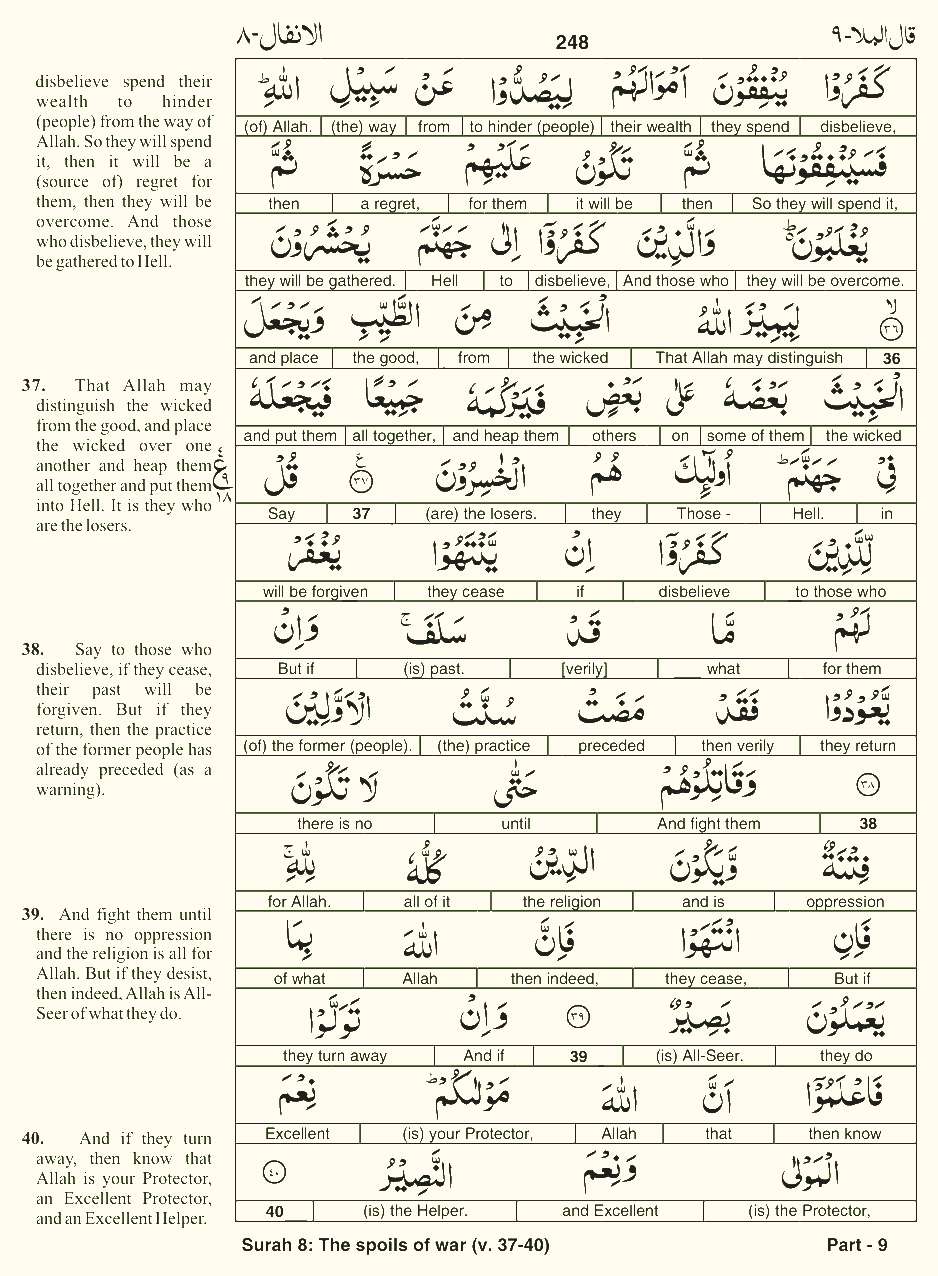 الانفال-٨ 248 قال الملا-٩
disbelieve spend their
wealth to hinder
(people) from the way of
Allah. So they will spend
it, then it will be a
(source of) regret for
them, then they will be
overcome. And those
who disbelieve, they will
be gathered to Hell.
37. That Allah may
distinguish the wicked
from the good, and place
the wicked over one
another and heap them
all together and put them
into Hell. It is they who
are the losers.
38. Say to those who
disbelieve, if they cease,
their past will be
forgiven. But if they
return, then the practice
of the former people has
already preceded (as a
warning).
39. And fight them until
there is no oppression
and the religion is all for
Allah. But if they desist,
then indeed, Allah is All-
Seer of what they do.
40. And if they turn
away, then know that
Allah is your Protector,
an Excellent Protector,
and an Excellent Helper.
كَفَرُوْا يُنْفِقُوْنَ اَمْوَالَهُمْ لِيَصُدُّوْا عَنْ سَبِيْلِ اللّٰهِ ؕ
(of) Allah. (the) way from to hinder (people) their wealth they spend disbelieve,
فَسَيُنْفِقُوْنَهَا ثُمَّ تَكُوْنُ عَلَيْهِمْ حَسْرَةً ثُمَّ
then a regret, for them it will be then So they will spend it,
يُغْلَبُوْنَ ؕ وَالَّذِيْنَ كَفَرُوْۤا اِلٰى جَهَنَّمَ يُحْشَرُوْنَ
they will be gathered. Hell to disbelieve, And those who they will be overcome.
لا ٣٦ لِيَمِيْزَ اللّٰهُ الْخَبِيْثَ مِنَ الطَّيِّبِ وَيَجْعَلَ
and place the good, from the wicked That Allah may distinguish 36
الْخَبِيْثَ بَعْضَهٗ عَلٰى بَعْضٍ فَيَرْكُمَهٗ جَمِيْعًا فَيَجْعَلَهٗ
and put them all together, and heap them others on some of them the wicked
فِيْ جَهَنَّمَ ؕ اُولٰٓئِكَ هُمُ الْخٰسِرُوْنَ ع ٣٧ قُلْ ٤ ع ٩ ١٨
Say 37 (are) the losers. they Those - Hell. in
لِّلَّذِيْنَ كَفَرُوْۤا اِنْ يَّنْتَهُوْا يُغْفَرْ
will be forgiven they cease if disbelieve to those who
لَهُمْ مَّا قَدْ سَلَفَ ۚ وَاِنْ
But if (is) past. [verily] what for them
يَّعُوْدُوْا فَقَدْ مَضَتْ سُنَّتُ الْاَوَّلِيْنَ
(of) the former (people). (the) practice preceded then verily they return
٣٨ وَقَاتِلُوْهُمْ حَتّٰى لَا تَكُوْنَ
there is no until And fight them 38
فِتْنَةٌ وَّيَكُوْنَ الدِّيْنُ كُلُّهٗ لِلّٰهِ ۚ
for Allah. all of it the religion and is oppression
فَاِنِ انْتَهَوْا فَاِنَّ اللّٰهَ بِمَا
of what Allah then indeed, they cease, But if
يَعْمَلُوْنَ بَصِيْرٌ ٣٩ وَاِنْ تَوَلَّوْا
they turn away And if 39 (is) All-Seer. they do
فَاعْلَمُوْۤا اَنَّ اللّٰهَ مَوْلٰىكُمْ ؕ نِعْمَ
Excellent (is) your Protector, Allah that then know
الْمَوْلٰى وَنِعْمَ النَّصِيْرُ ٤٠
40 (is) the Helper. and Excellent (is) the Protector,
Surah 8: The spoils of war (v. 37-40) Part - 9